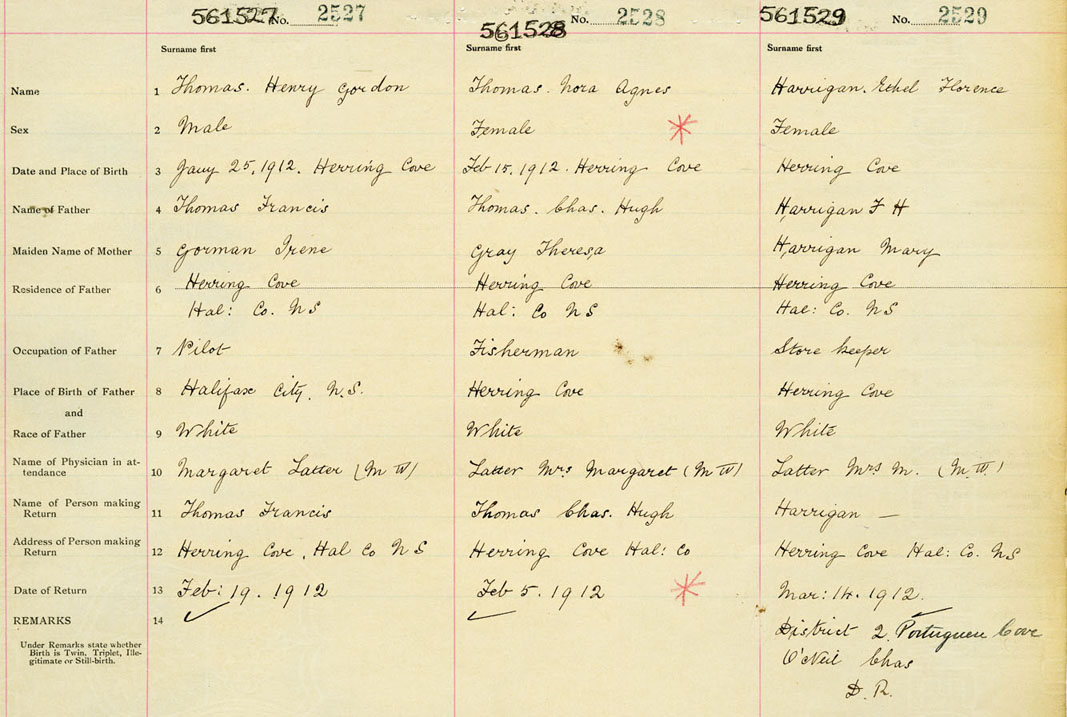 561527 No. 2527 561528 No. 2528 561529 No. 2529
Surname first Surname first Surname first
Name 1 Thomas. Henry Gordon Thomas. Nora Agnes Harrigan. Ethel Florence
Sex 2 Male Female Female
Date and Place of Birth 3 Jany 25, 1912. Herring Cove Feb 15, 1912. Herring Cove Herring Cove
Name of Father 4 Thomas Francis Thomas. Chas. Hugh Harrigan F H
Maiden Name of Mother 5 Gorman Irene Gray Theresa Harrigan Mary
Residence of Father 6 Herring Cove Herring Cove Herring Cove
Hal: Co. N S Hal: Co N S Hal: Co. N S
Occupation of Father 7 Pilot Fisherman Store keeper
Place of Birth of Father 8 Halifax City. N.S. Herring Cove Herring Cove
and
Race of Father 9 White White White
Name of Physician in at-
tendance 10 Margaret Latter (M W) Latter Mrs Margaret (M W) Latter Mrs M. (M. W)
Name of Person making
Return 11 Thomas Francis Thomas Chas. Hugh Harrigan —
Address of Person making
Return 12 Herring Cove, Hal Co N S Herring Cove Hal: Co Herring Cove Hal: Co. N S
Date of Return 13 Feb: 19. 1912 Feb 5. 1912 Mar: 14. 1912.
REMARKS 14
Under Remarks state whether
Birth is Twin, Triplet, Ille-
gitimate or Still-birth.
District 2. Portuguese Cove
O'Neil Chas
D. R.